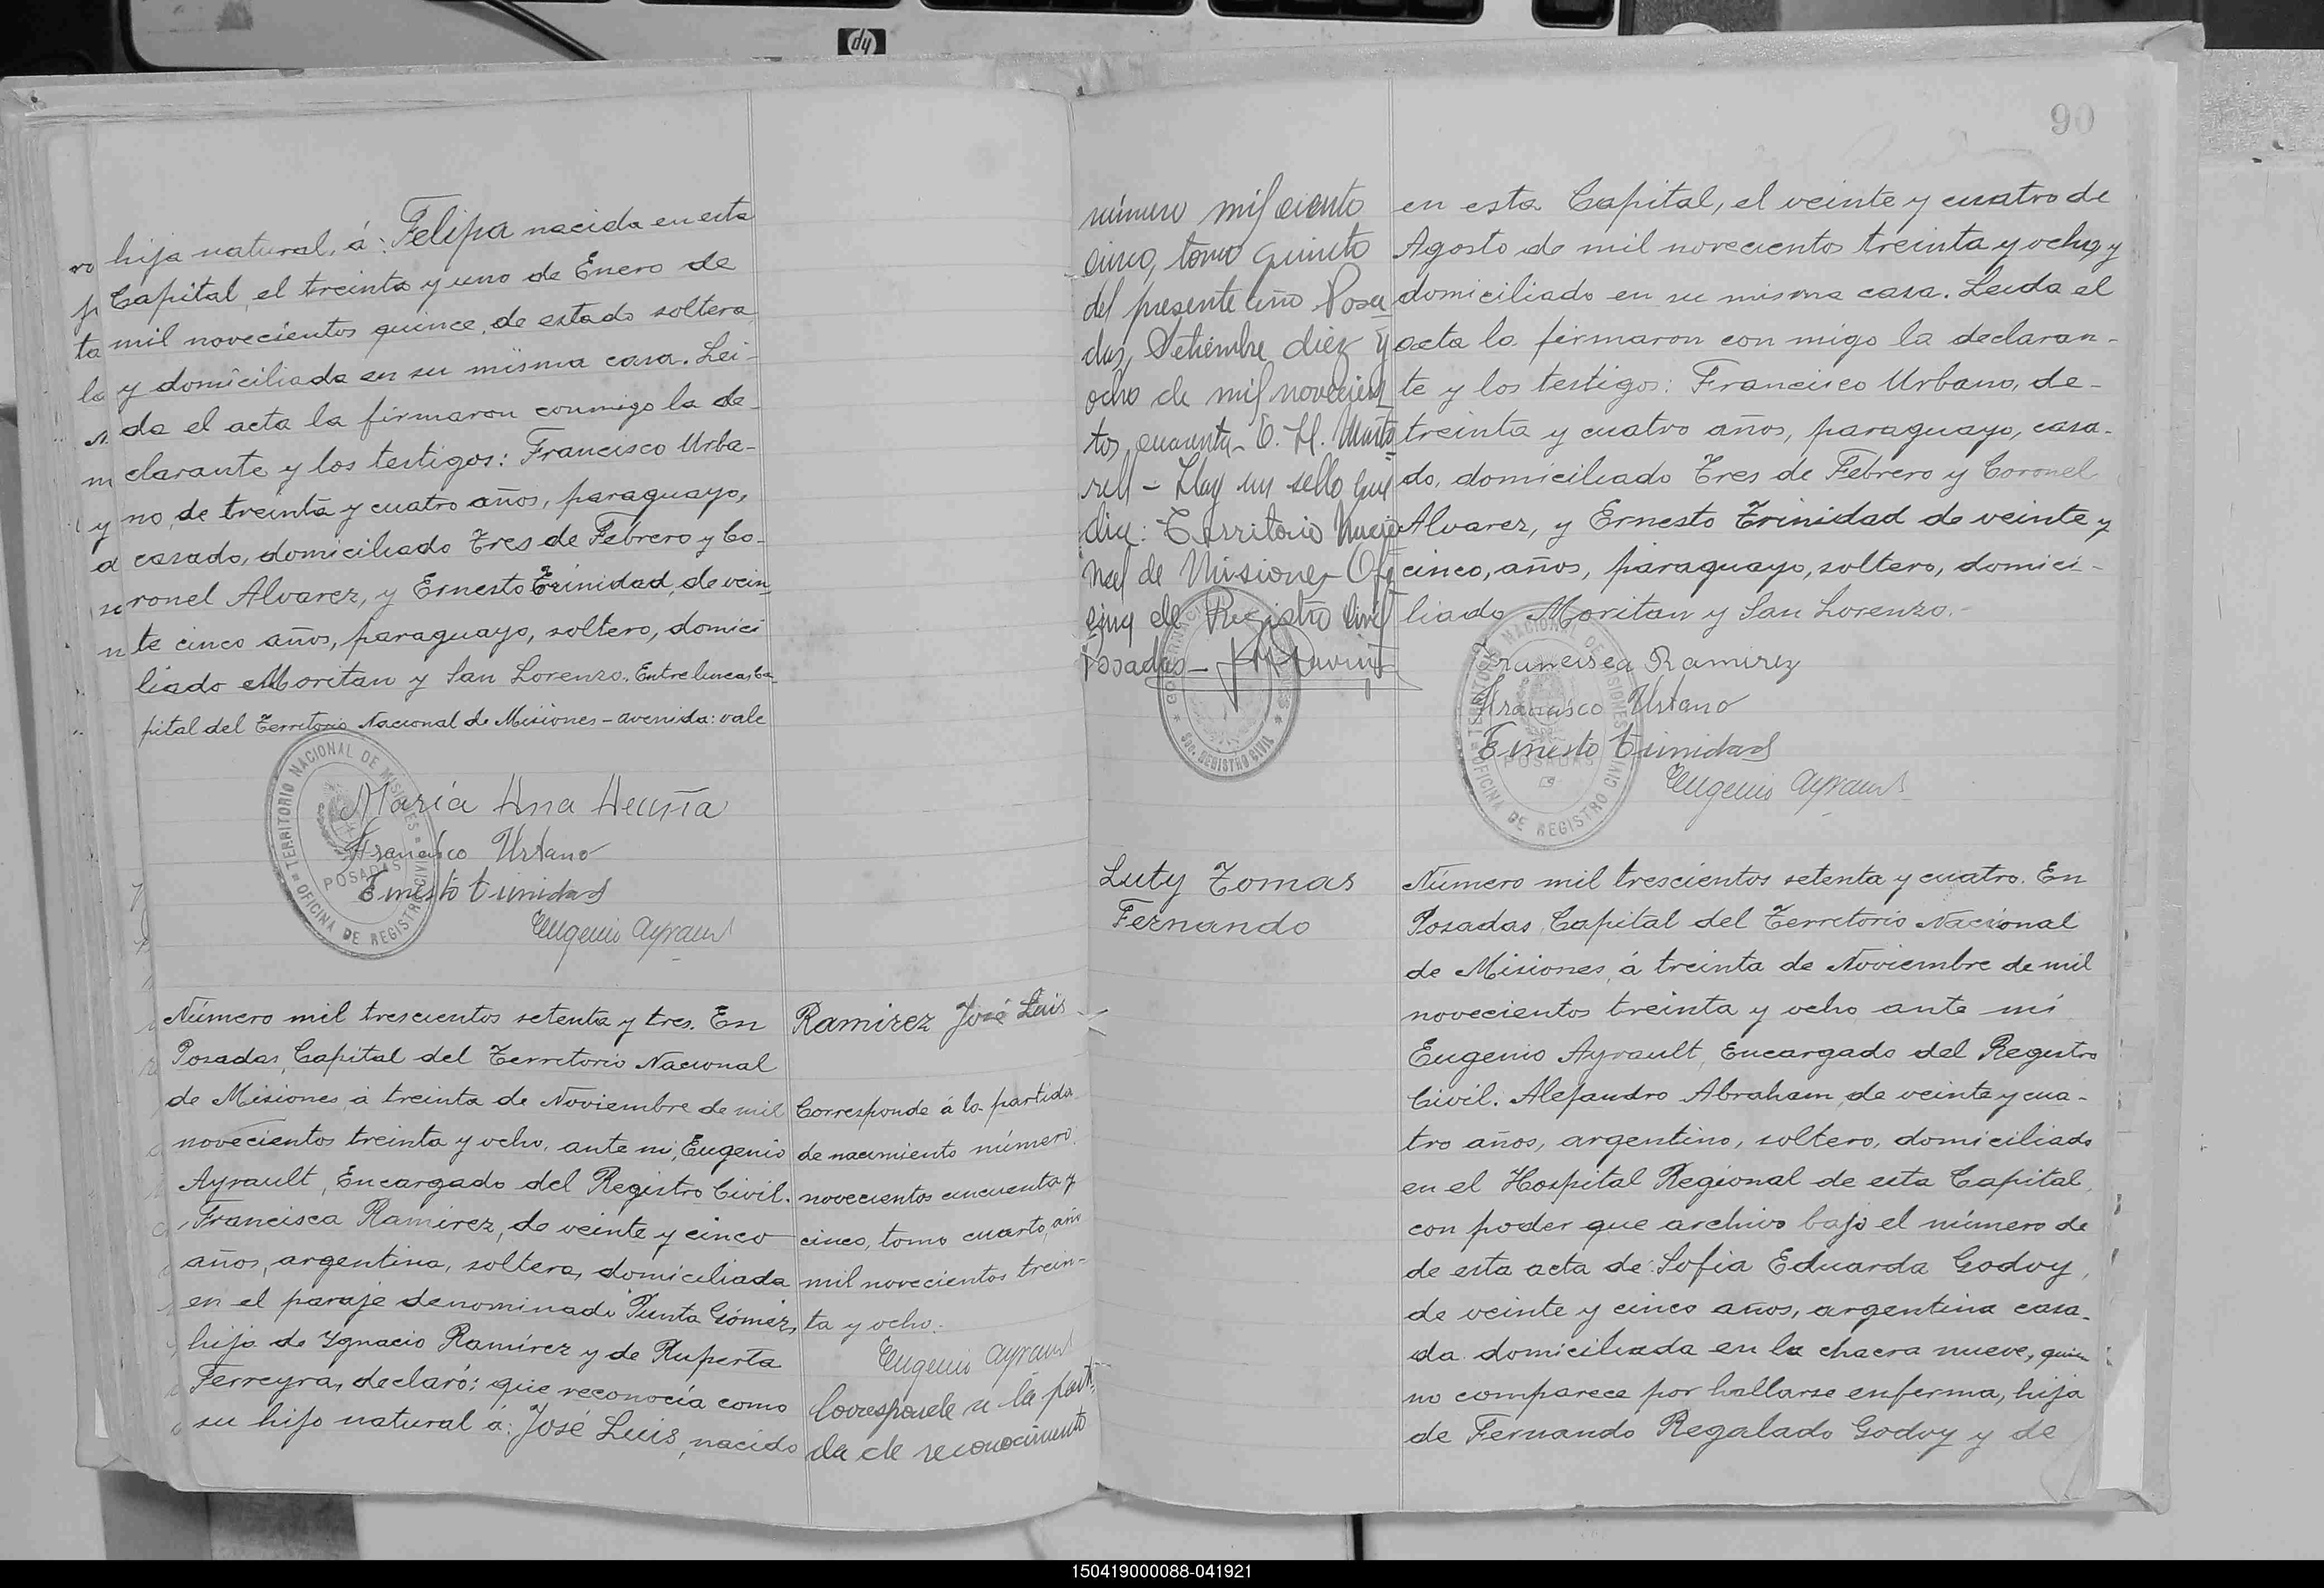 hp
hija natural, á: Felipa nacida en esta
Capital, el treinta y uno de Enero de
mil novecientos quince, de estado soltera
y domiciliada en su misma casa. Lei-
da el acta la firmaron conmigo la de-
clarante y los testigos: Francisco Urba-
no, de treinta y cuatro años, paraguayo,
casado, domiciliado Tres de Febrero y Co-
ronel Alvarez, y Ernesto Trinidad, de vein
te cinco años, paraguayo, soltero, domici
liado Moritan y San Lorenzo. Entre lineas: Ca-
pital del Territorio Nacional de Misiones - avenida: vale
TERRITORIO NACIONAL DE MISIONES
POSADAS
OFICINA DE REGISTRO CIVIL
María Ana Acuña
Francisco Urbano
Ernesto Trinidad
Eugenio Ayrault
Número mil trescientos setenta y tres. En
Posadas, Capital del Territorio Nacional
de Misiones, á treinta de Noviembre de mil
novecientos treinta y ocho, ante mi, Eugenio
Ayrault, Encargado del Registro Civil.
Francisca Ramirez, de veinte y cinco
años, argentina, soltera, domiciliada
en el paraje denominado Punta Gómez,
hija de Ygnacio Ramírez y de Ruperta
Ferreyra, declaró: que reconocía como
su hijo natural á: José Luis, nacido
Ramirez José Luis
Corresponde á la partida
de nacimiento número
novecientos cincuenta y
cinco, tomo cuarto, año
mil novecientos trein-
ta y ocho.
Eugenio Ayrault
Corresponde a la parti
da de reconocimiento
90
número mil ciento
cinco, tomo quinto
del presente año Posa
das, Setiembre diez y
ocho de mil novecien
tos cuarenta - E. H. Marto
rell - Hay un sello que
dice: Territorio Nacio
nal de Misiones Ofi
cina de Registro Civil
Posadas -
SEC. REGISTRO CIVIL
en esta Capital, el veinte y cuatro de
Agosto de mil novecientos treinta y ocho, y
domiciliado en su misma casa. Leida el
acta la firmaron con migo la declaran-
te y los testigos: Francisco Urbano, de-
treinta y cuatro años, paraguayo, casa-
do, domiciliado Tres de Febrero y Coronel
Alvarez, y Ernesto Trinidad de veinte y
cinco, años, paraguayo, soltero, domici-
liado Moritan y San Lorenzo.-
TERRITORIO NACIONAL DE MISIONES
POSADAS
OFICINA DE REGISTRO CIVIL
Francisca Ramirez
Francisco Urbano
Ernesto Trinidad
Eugenio Ayrault
Luty Tomas
Fernando
Número mil trescientos setenta y cuatro. En
Posadas, Capital del Territorio Nacional
de Misiones, á treinta de Noviembre de mil
novecientos treinta y ocho ante mi
Eugenio Ayrault, Encargado del Registro
Civil. Alejandro Abraham, de veinte y cua-
tro años, argentino, soltero, domiciliado
en el Hospital Regional de esta Capital,
con poder que archivo bajo el número de
de esta acta de: Sofia Eduarda Godoy,
de veinte y cinco años, argentina casa-
da domiciliada en la chacra nueve, quien
no comparece por hallarse enferma, hija
de Fernando Regalado Godoy y de
150419000088-041921